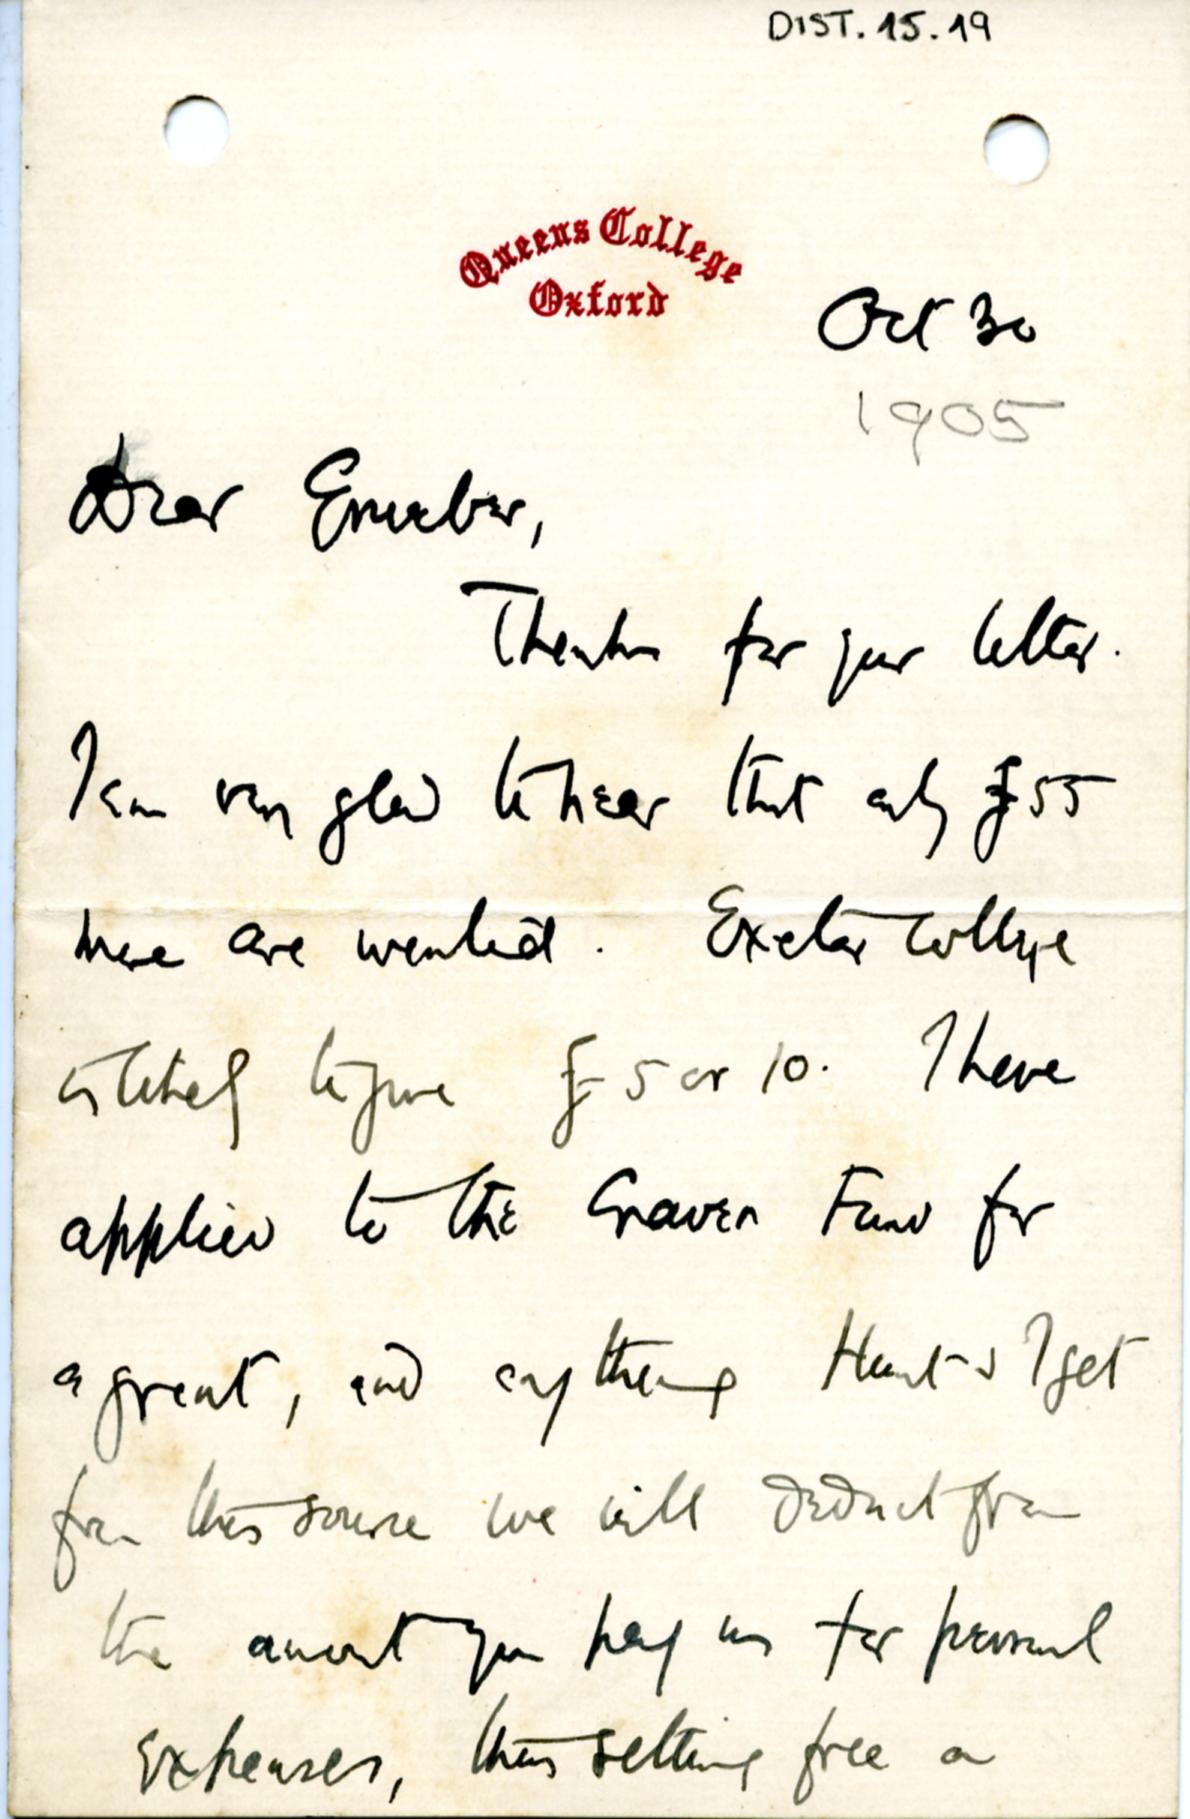 DIST. 15. 19
Queens College
Oxford
Oct 30
1905
Dear
Thanks for your letter.
I am very glad to hear that only £55
more are wanted. Exeter College
is likely to give £5 or 10. I have
applied to the Craven Fund for
a grant, and anything Hunt & I get
from this source we will deduct from
the amount you pay us for personal
expenses, thus setting free a